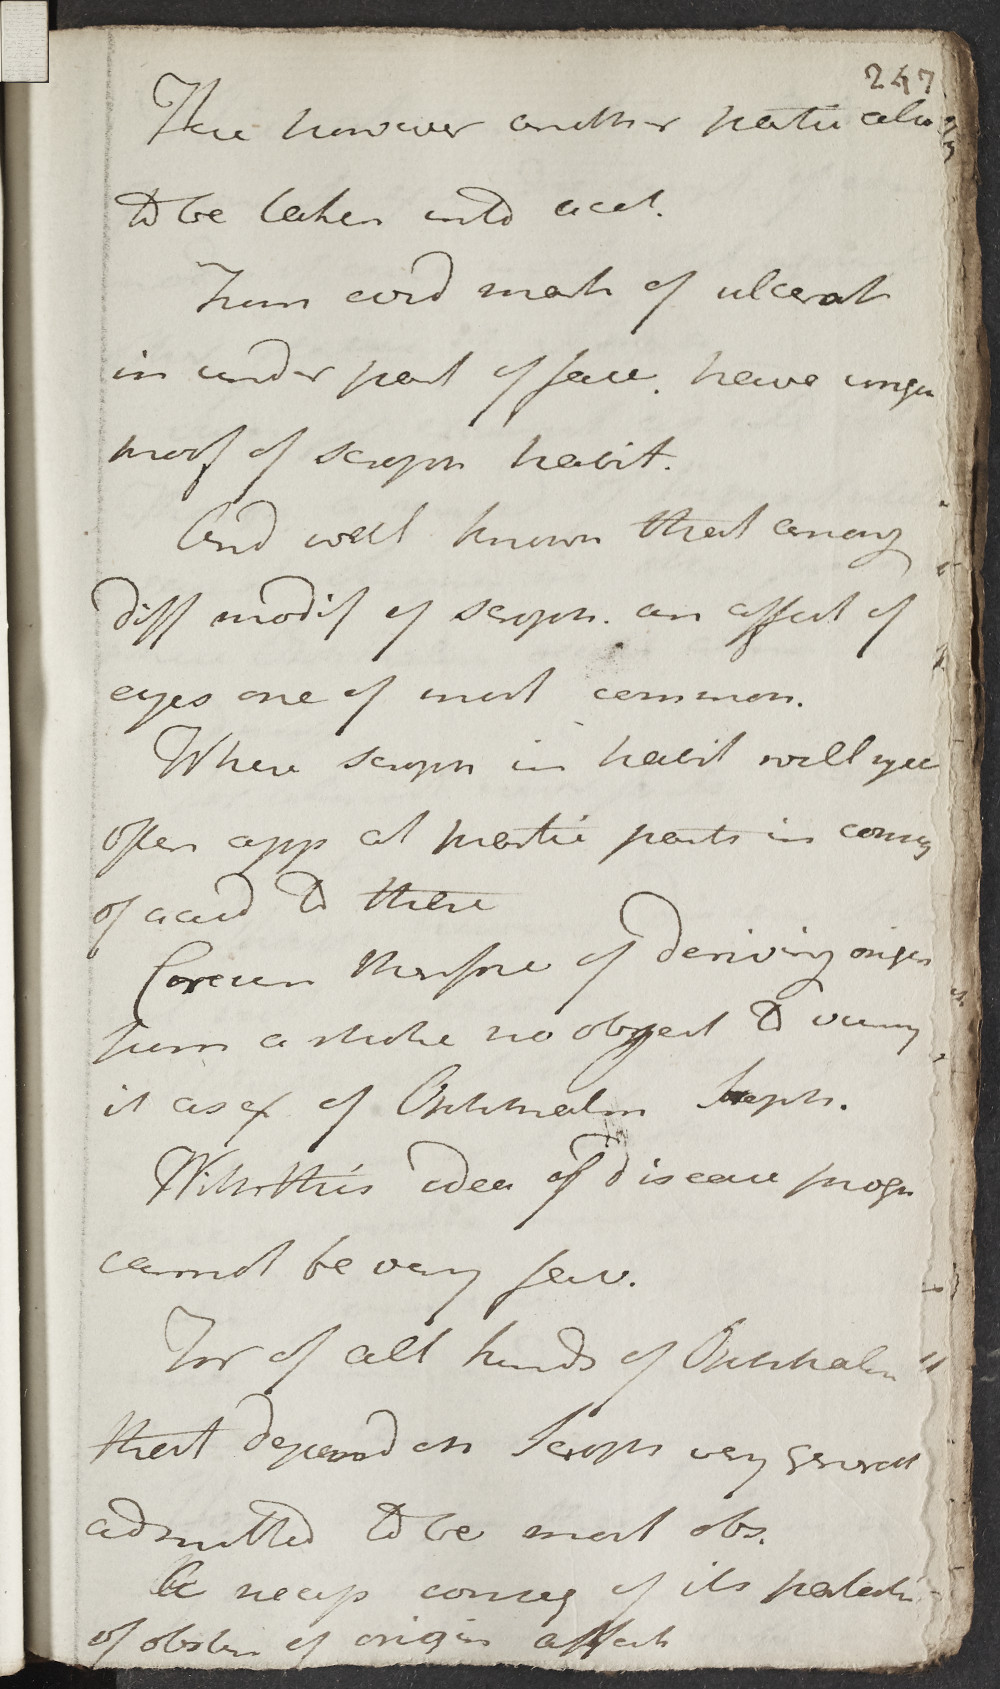 247
Here however another partic also
to be taken into acct.
From evid mark of ulcerat
in under part of face. have uneq
proof of scroph habit.
And well known that among
diff modif of scroph. an affect of
eyes one of most common.
Where scroph in habit will
often app at partic parts in conseq
of accid to these
Circum therefore of deriving origin
from a stroke no object to viewing
it as ex of Ophthalm Scroph.
With this idea of disease progn
cannot be very fav.
For of all kinds of Ophthalm
that depend on Scroph very general
admitted to be most obs.
A necess conseq of its
of obstin of origin affect